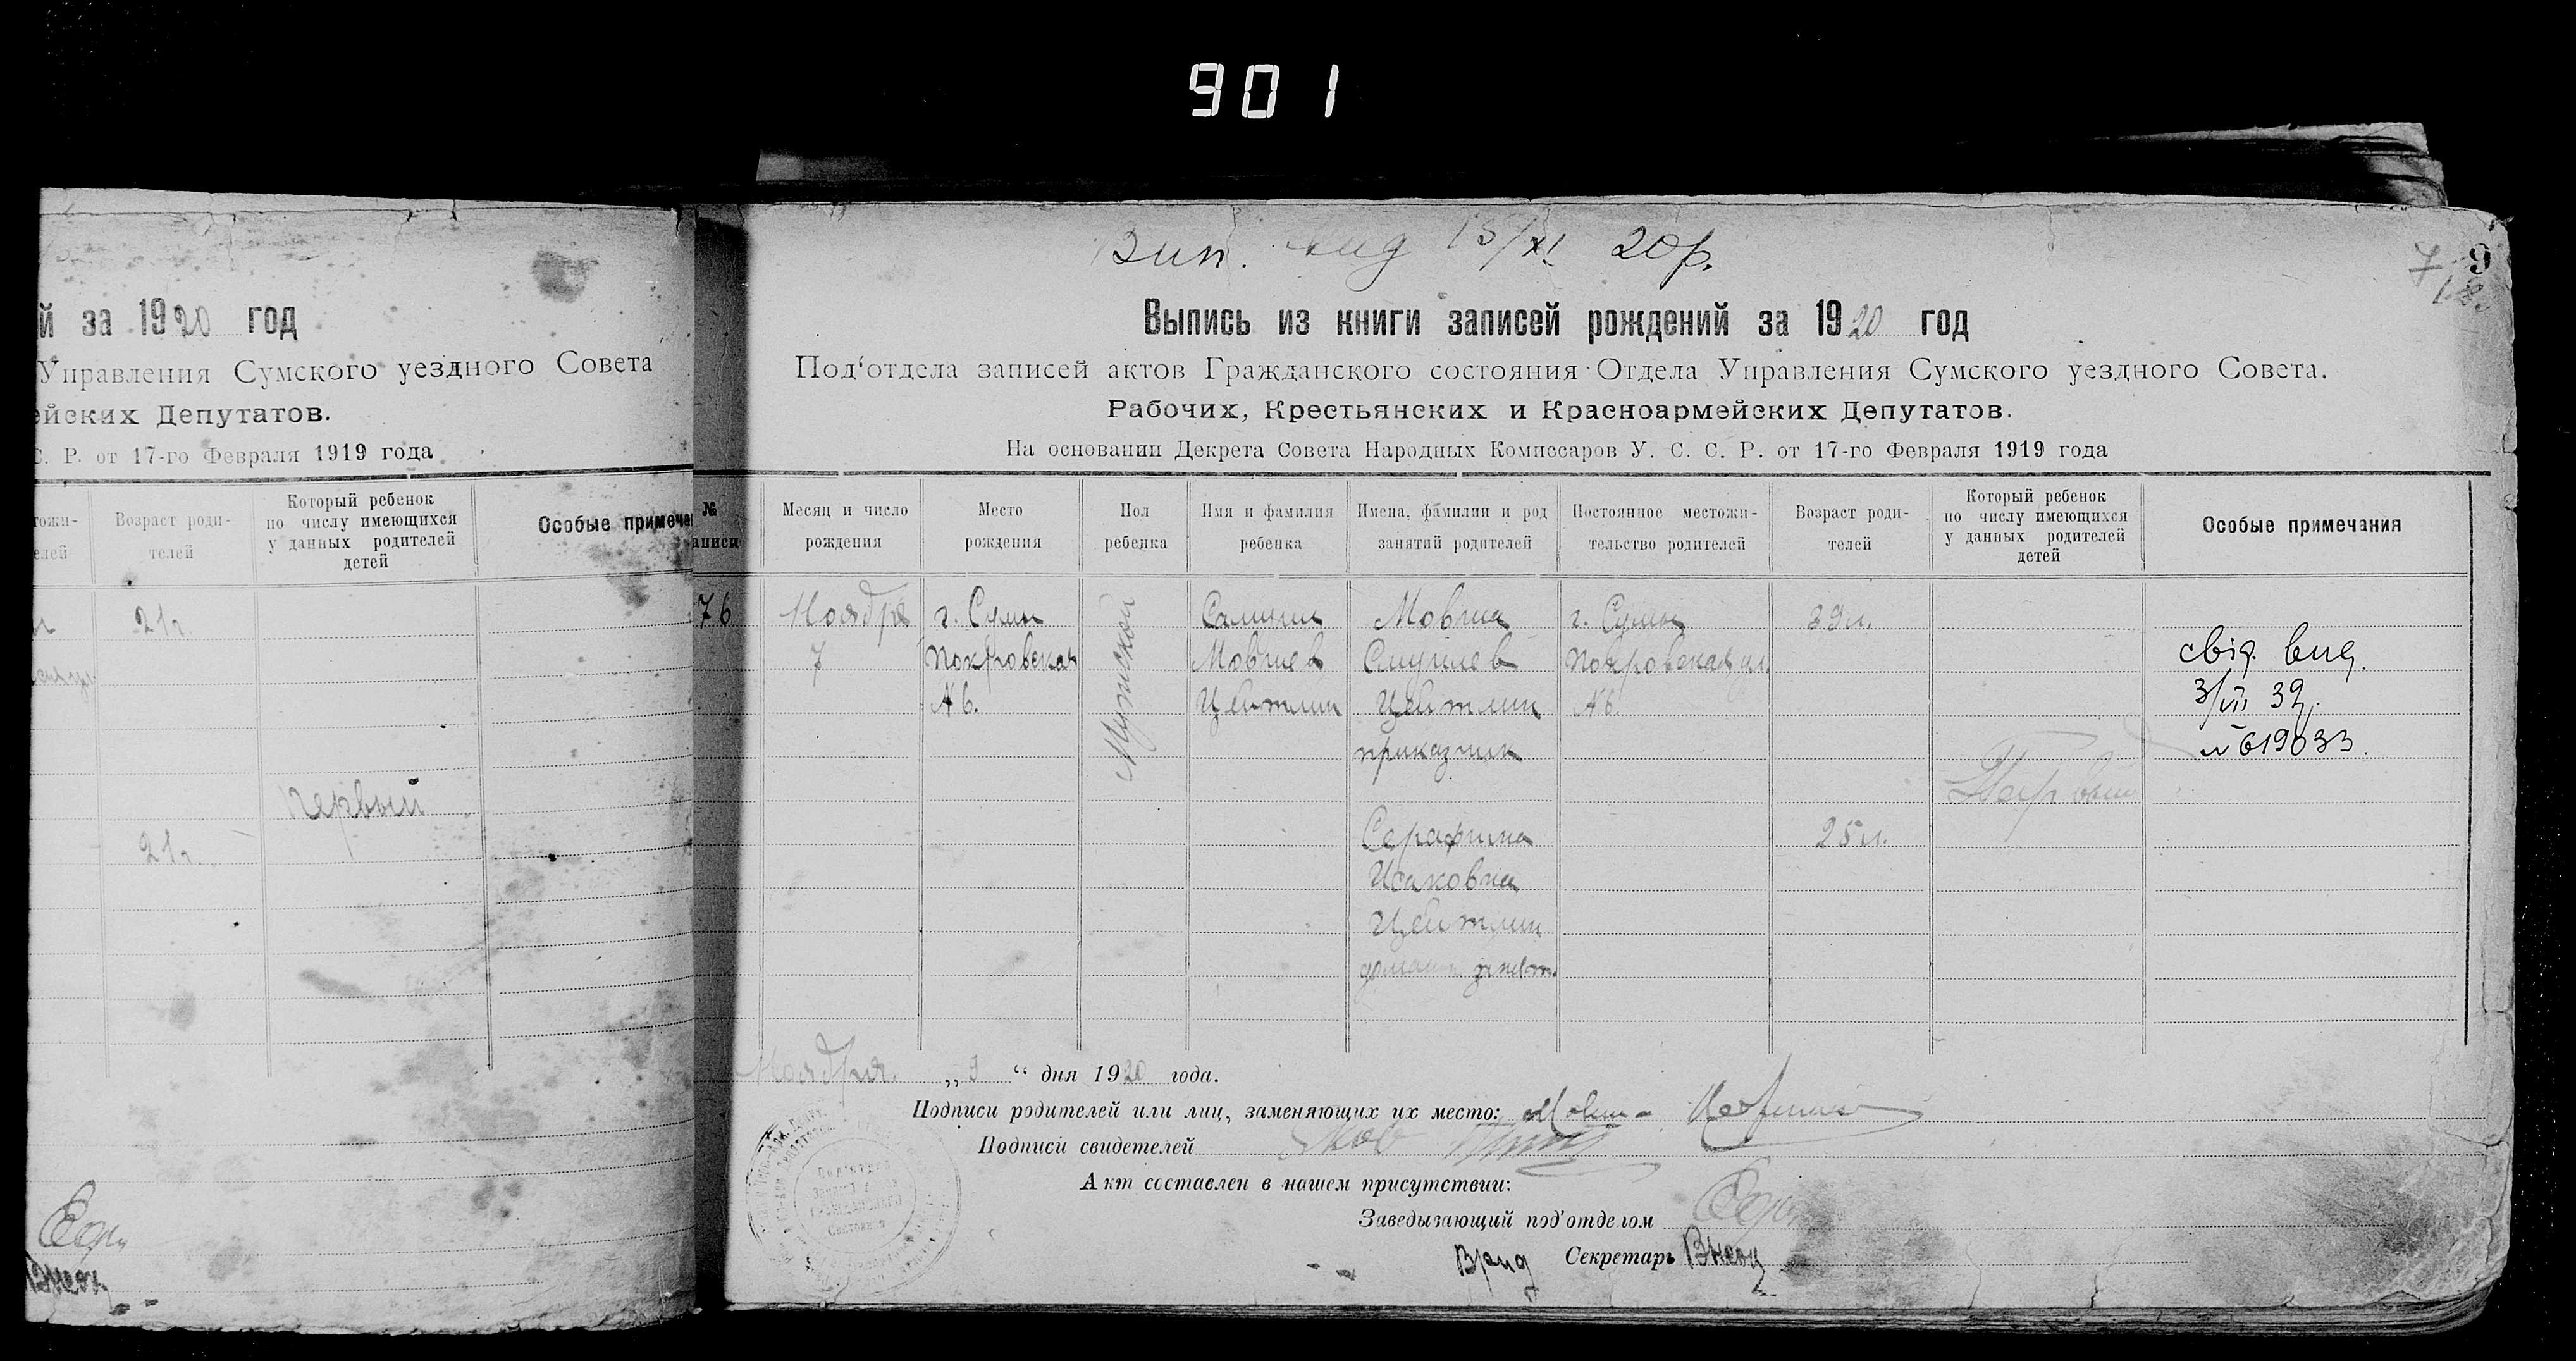 901
й за 1920 год
Управления Сумского уездного Совета
ейских Депутатов.
С. Р. от 17-го Февраля 1919 года
тожи-
елей
Возраст роди-
телей
Который ребенок
по числу имеющихся
у данных родителей
детей
Особые примеча
21г.
первый
21г.
Вип. вид 15/XI 20р.
7
9
Выпись из книги записей рождений за 1920 год
Под‘отдела записей актов Гражданского состояния Отдела Управления Сумского уездного Совета.
Рабочих, Крестьянских и Красноармейских Депутатов.
На основании Декрета Совета Народных Комиссаров У. С. С. Р. от 17-го Февраля 1919 года
№
аписи
Месяц и число
рождения
Место
рождения
Пол
ребенка
Имя и фамилия
ребенка
Имена, фамилии и род
занятий родителей
Постоянное местожи-
тельство родителей
Возраст роди-
телей
Который ребенок
по числу имеющихся
у данных родителей
детей
Особые примечания
76
Ноября
7
г. Сумы
Покровская
№6.
Мужской
Мовшев
Цейтлин
Мовша
Цейтлин
приказчик
Серафима
Исаковна
Цейтлин
г. Сумы
Покровская ул.
№6.
25л.
Первый
свід. вид.
3/VII 39р.
№619033.
Ноября „ 9 “ дня 1920 года.
Подписи родителей или лиц, заменяющих их место:
Подписи свидетелей
Акт составлен в нашем присутствии:
Заведывающий под‘отделом
Врид Секретарь